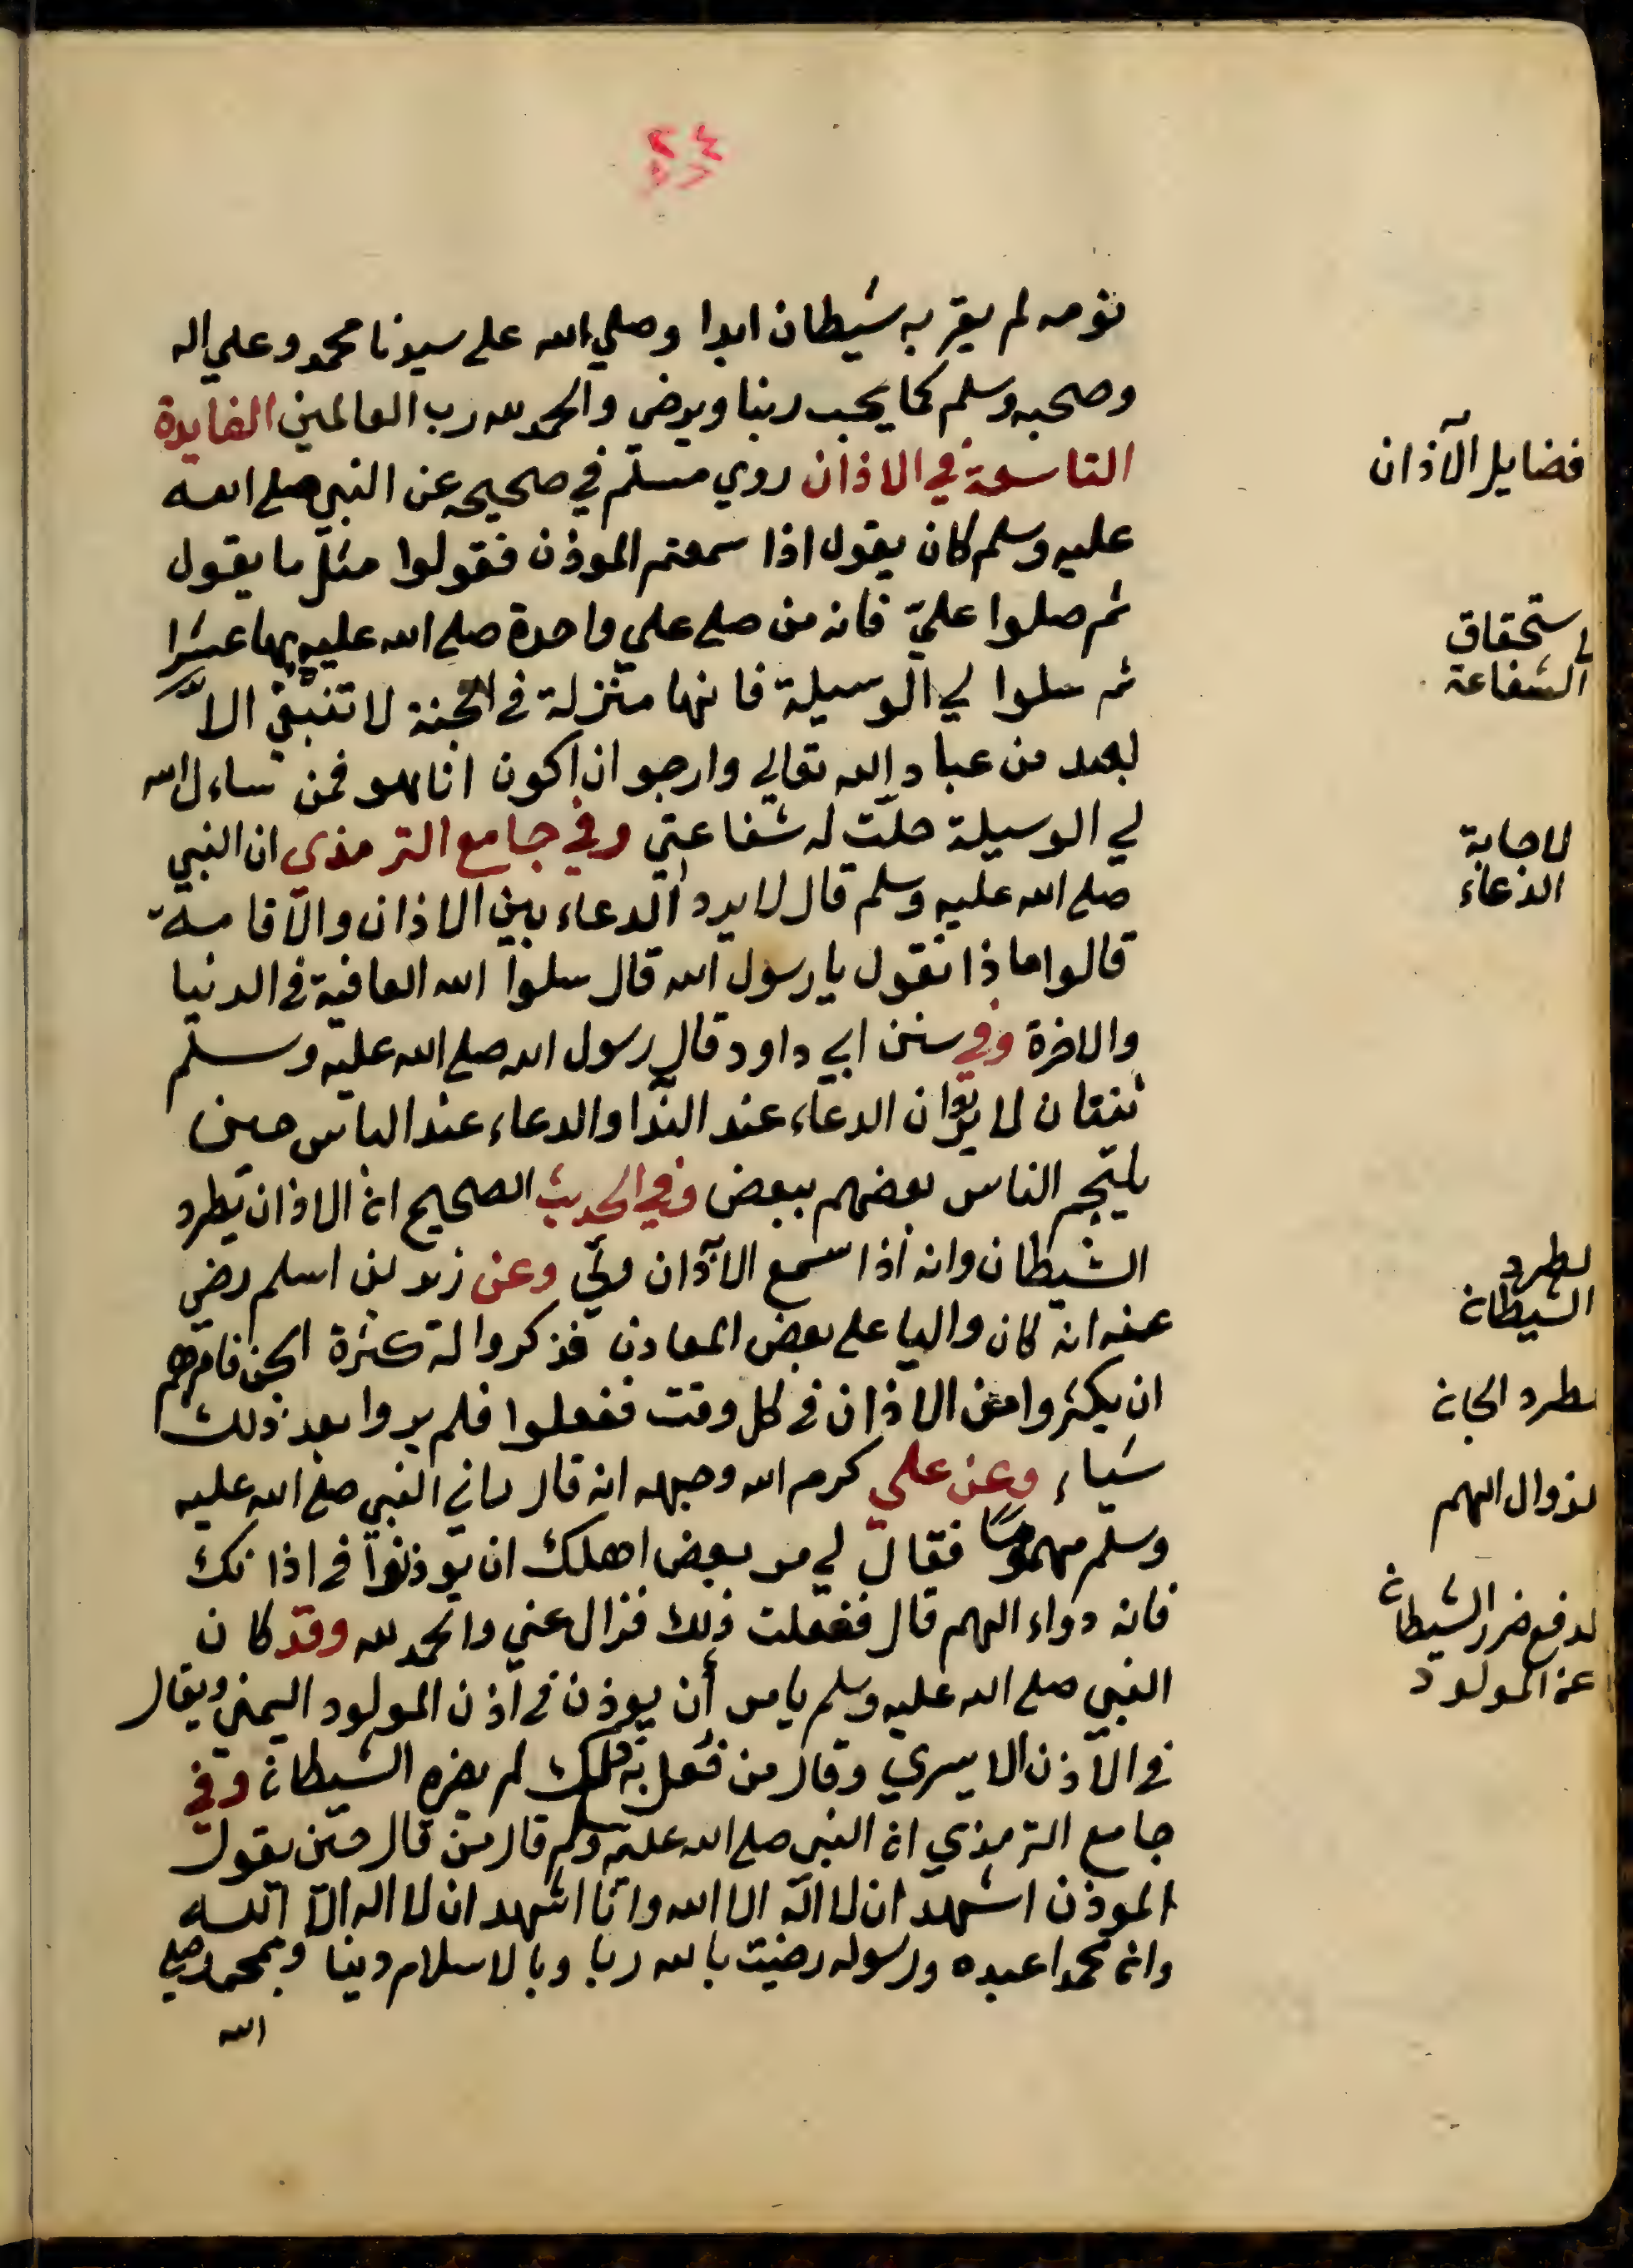 ٢٤
نومه لم يقربه شيطان ابدا وصلي الله على سيدنا محمد وعلي اله
وصحبه وسلم كما يحب ربنا ويرضي والحمد لله رب العالمين الفايدة
التاسعة في الاذان روي مسلم في صحيحه عن النبي صلي الله
فضايل الآذان
عليه وسلم كان يقول اذا سمعتم الموذن فقولوا مثل ما يقول
ثم صلوا عليّ فانه من صلي علي واحدة صلي الله عليه بها عشرا
ستحقاق
الشفاعة
ثم سلوا لي الوسيلة فانها منزلة في الجنة لا تنبغي الا
لعبد من عباد الله تعالي وارجو ان اكون انا هو فمن ساءل الله
لي الوسيلة حلّت له شفاعتي وفي جامع الترمذي ان النبي
لاجابة
الدعاء
صلي الله عليه وسلم قال لا يرد الدعاء بين الاذان والاقامة
قالوا ماذا نقول يا رسول الله قال سلوا الله العافية في الدنيا
والاخرة وفي سنن ابي داود قال رسول الله صلي الله عليه وسلم
ثنتان لا يردان الدعاء عند الندا والدعاء عند الباس حين
يلتجم الناس بعضهم ببعض وفي الحديث الصحيح ان الاذان يطرد
الشيطان وانه اذا سمع الآذان ولّي وعن زيد بن اسلم رضي
لطرد
الشيطان
عنه انه كان واليا على بعض المعادن فذكروا له كثرة الجن فامرهم
ان يكثروا من الاذان في كل وقت ففعلوا فلم يروا بعد ذلك
لطرد الجان
شياء وعن علي كرم الله وجهه انه قال راني النبي صلي الله عليه
لزوال الهم
وسلم مهموما فقال لي مر بعض اهلك ان يوذنوا في اذانك
فانه دواء الهم قال ففعلت ذلك فزال عني والحمد لله وقد كان
لدفع ضرر الشيطان
عن المولود
النبي صلي الله عليه وسلم يامر أن يوذن في اذن المولود اليمني ويقال
في الاذن الايسري وقال من فعل به ذلك لم يضره الشيطان وفي
جامع الترمذي ان النبي صلي الله عليه وسلم قال من قال حين يقول
الموذن اشهد ان لا اله الا الله وانا اشهد ان لا اله الا الله
وان محمدا عبده ورسوله رضيت بالله ربا وبالاسلام دينا وبمحمد صلي
الله